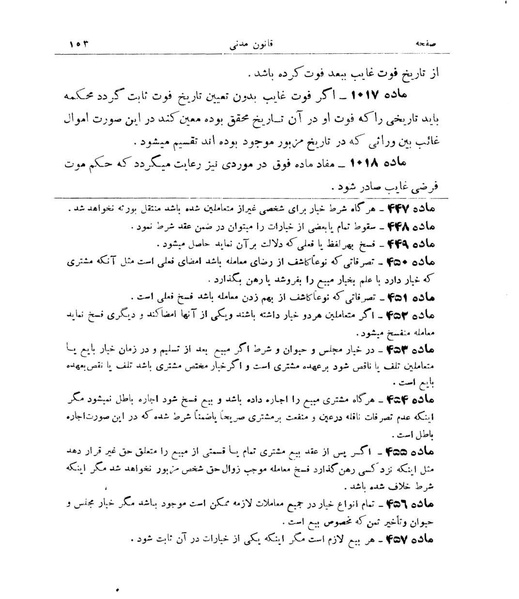 صفحه قانون مدنی ۱۵۳
از تاریخ فوت غایب ببعد فوت کرده باشد .
ماده ۱۰۱۷ ـ اگر فوت غایب بدون تعیین تاریخ فوت ثابت گردد محکمه
باید تاریخی را که فوت او در آن تاریخ محقق بوده معین کند در این صورت اموال
غائب بین وراثی که در تاریخ مزبور موجود بوده اند تقسیم میشود .
ماده ۱۰۱۸ ـ مفاد ماده فوق در موردی نیز رعایت میگردد که حکم موت
فرضی غایب صادر شود .
ماده ۴۴۷ ـ هرگاه شرط خیار برای شخصی غیراز متعاملین شده باشد منتقل بورثه نخواهد شد .
ماده ۴۴۸ ـ سقوط تمام یابعضی از خیارات را میتوان در ضمن عقد شرط نمود .
ماده ۴۴۹ ـ فسخ بهرلفظ یا فعلی که دلالت برآن نماید حاصل میشود .
ماده ۴۵۰ ـ تصرفاتی که نوعاًکاشف از رضای معامله باشد امضای فعلی است مثل آنکه مشتری
که خیار دارد با علم بخیار مبیع را بفروشد یا رهن بگذارد .
ماده ۴۵۱ ـ تصرفاتی که نوعاًکاشف از بهم زدن معامله باشد فسخ فعلی است .
ماده ۴۵۲ ـ اگر متعاملین هردو خیار داشته باشند ویکی از آنها امضاکند و دیگری فسخ نماید
معامله منفسخ میشود .
ماده ۴۵۳ ـ در خیار مجلس و حیوان و شرط اگر مبیع بعد از تسلیم و در زمان خیار بایع یا
متعاملین تلف یا ناقص شود برعهده مشتری است و اگرخیار مختص مشتری باشد تلف یا نقص بعهده
بایع است .
ماده ۴۵۴ ـ هرگاه مشتری مبیع را اجاره داده باشد و بیع فسخ شود اجاره باطل نمیشود مگر
اینکه عدم تصرفات ناقله درعین و منفعت برمشتری صریحاً یاضمناً شرط شده که در این صورت اجاره
باطل است .
ماده ۴۵۵ ـ اگر پس از عقد بیع مشتری تمام یا قسمتی از مبیع را متعلق حق غیر قرار دهد
مثل اینکه نزد کسی رهن گذارد فسخ معامله موجب زوال حق شخص مزبور نخواهد شد مگر اینکه
شرط خلاف شده باشد .
ماده ۴۵۶ ـ تمام انواع خیار در جمیع معاملات لازمه ممکن است موجود باشد مگر خیار مجلس و
حیوان وتأخیر ثمن که مخصوص بیع است .
ماده ۴۵۷ ـ هر بیع لازم است مگر اینکه یکی از خیارات در آن ثابت شود .